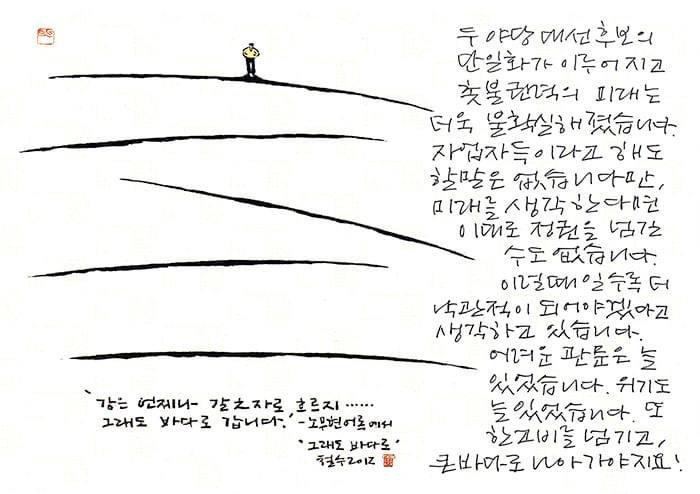 두 야당 대선후보의
단일화가 이루어지고
촛불권력의 미래는
더욱 불확실해졌습니다.
자업자득이라고 해도
할말은 없습니다만,
미래를 생각한다면
이대로 정권을 넘길
수도 없습니다.
이럴때일수록 더
낙관적이 되어야겠다고
생각하고 있습니다.
어려운 늘
있었습니다. 위기도
늘있었습니다. 또
한고비를 넘기고,
큰바다로 나아가야지요!
'강은 언제나 갈之자로 흐르지……
그래도 바다로 갑니다.' -노무현어록에서
"그래도 바다로"
철수2012